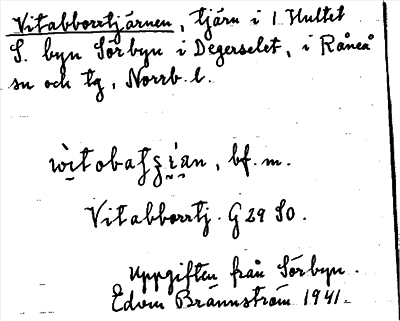 Vitabborrtjärnen, tjärn i 1 Hultet
S. byn Sörbyn i Degerselet, i Råneå
sn och tg, Norrb. l.
bf. m.
Vitabborrtj. G 29 SO.
Uppgiften från Sörbyn.
Edvin Brännström 1941.